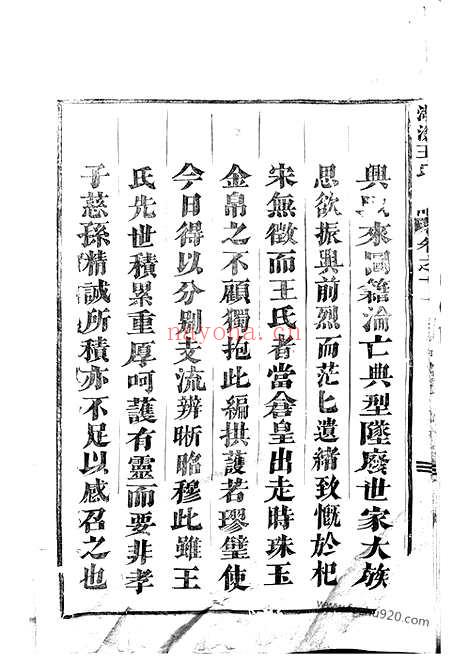 興以來圖籍淪亡典型墜廢世家大族
思欲振興前烈而茫匕遺緒致慨於杞
宋無徵而王氏者當倉皇出走時珠玉
金帛之不顧獨抱此編拱護若璆璧使
今日得以分别支流辨晰昭穆此雖王
氏先世積累重厚呵護有靈而要非孝
子慈孫精誠所積亦不足以感召之也
nayona.cn
www.foshu920.com